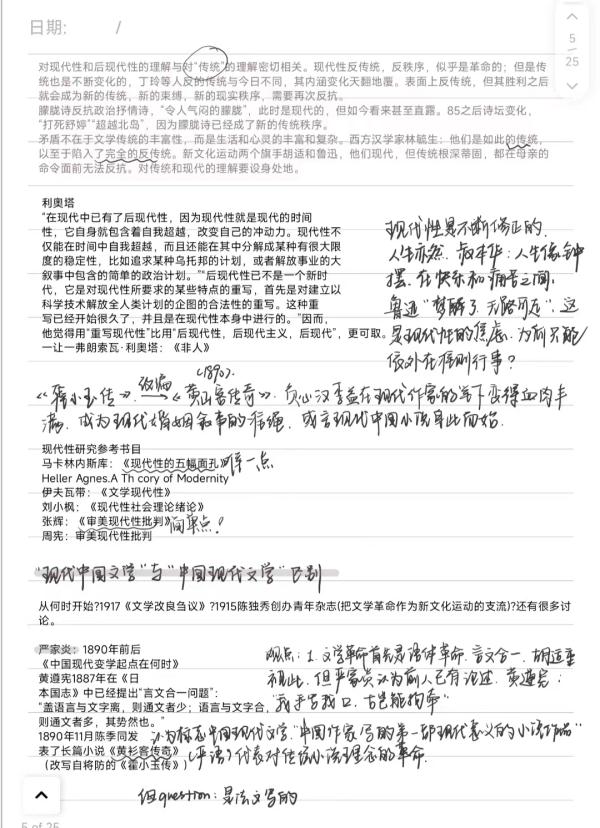 日期: /
5
25
对现代性和后现代性的理解与对“传统”的理解密切相关。现代性反传统，反秩序，似乎是革命的；但是传
统也是不断变化的，丁玲等人反的传统与今日不同，其内涵变化天翻地覆。表面上反传统，但其胜利之后
就会成为新的传统，新的束缚，新的现实秩序，需要再次反抗。
朦胧诗反抗政治抒情诗，“令人气闷的朦胧”，此时是现代的，但如今看来甚至直露。85之后诗坛变化，
“打死舒婷”“超越北岛”，因为朦胧诗已经成了新的传统秩序。
矛盾不在于文学传统的丰富性，而是生活和心灵的丰富和复杂。西方汉学家林毓生：他们是如此的传统，
以至于陷入了完全的反传统。新文化运动两个旗手胡适和鲁迅，他们现代，但传统根深蒂固，都在母亲的
命令面前无法反抗。对传统和现代的理解要设身处地。
利奥塔
“在现代中已有了后现代性，因为现代性就是现代的时间
性，它自身就包含着自我超越，改变自己的冲动力。现代性不
仅能在时间中自我超越，而且还能在其中分解成某种有很大限
度的稳定性，比如追求某种乌托邦的计划，或者解放事业的大
叙事中包含的简单的政治计划。”“后现代已不是一个新时
代，它是对现代性所要求的某些特点的重写，首先是对建立以
科学技术解放全人类计划的企图的合法性的重写。这种重
写已经开始很久了，并且是在现代性本身中进行的。”因而，
他觉得用“重写现代性”比用“后现代性，后现代主义，后现代”，更可取。
一让一弗朗索瓦·利奥塔：《非人》
现代性是不断修正的，
人生亦然 叔本华：人生像钟
摆，在快乐和痛苦之间，
鲁迅“梦醒了无路可走”，这
是现代性的焦虑，为何只能
依外在准则行事？
1890?
《霍小玉传》改编→《黄衫客传奇》。负心汉李益在现代作家的笔下变得血肉丰
满，成为现代婚姻叙事的雏形，或言现代中国小说自此而始．
现代性研究参考书目
马卡林内斯库：《现代性的五幅面孔》难一点
Heller Agnes.A Th cory of Modernity
伊夫瓦带：《文学现代性》
刘小枫：《现代性社会理论绪论》
张辉：《审美现代性批判》简单点！
周宪：审美现代性批判
“现代中国文学”与“中国现代文学”区别
从何时开始?1917《文学改良刍议》?1915陈独秀创办青年杂志(把文学革命作为新文化运动的支流)?还有很多讨
论。
严家炎：1890年前后
《中国现代变学起点在何时》
黄遵宪1887年在《日
本国志》中已经提出“言文合一问题”：
“盖语言与文字离，则通文者少；语言与文字合，
则通文者多，其势然也。”
1890年11月陈季同发
表了长篇小说《黄杉客传奇》
（改写自将防的《霍小玉传》）
观点：1.文学革命首先是语体革命，言文合一，胡适重
视此，但严家炎认为前人已有论述，黄遵宪：
“我手写我口，古岂能拘牵”
认为标志中国现代文学，“中国作家写的第一部现代意义的小说作品”
（严语）代表对传统小说理念的革命．
但question：是法文写的
5 of 25